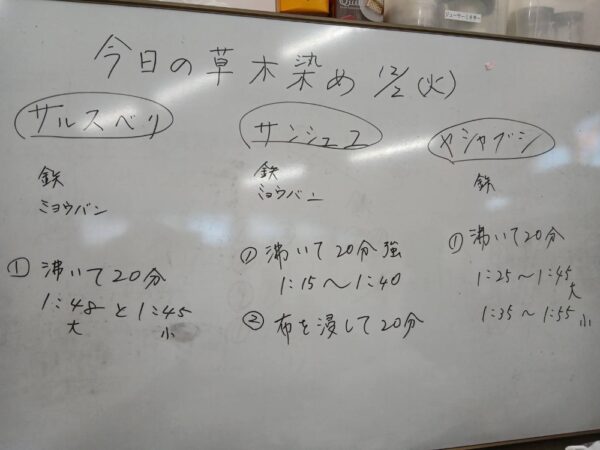 今日の草木染め 12/2 (火)
サルスベリ
鉄
ミョウバン
① 沸いて20分
1:48 と 1:45
大 小
サンシュユ
鉄
ミョウバン
① 沸いて20分強
1:15〜1:40
② 布を浸して20分
ヤシャブシ
鉄
① 沸いて20分
1:25〜1:45
大
1:35〜1:55 小